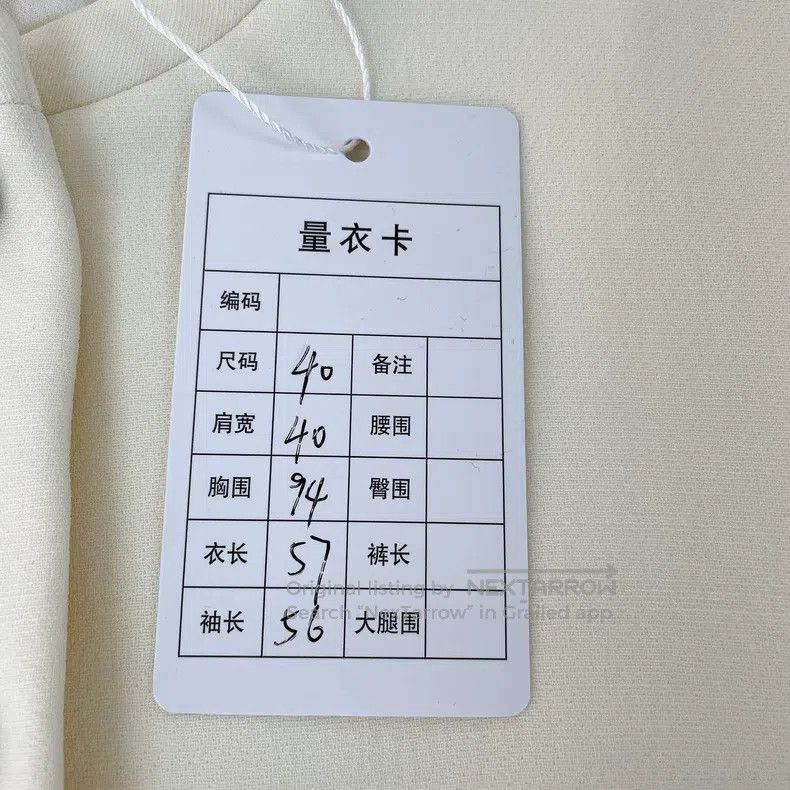 量衣卡
编码
尺码 40 备注
肩宽 40 腰围
胸围 94 臀围
衣长 57 裤长
袖长 56 大腿围
Original listing by NEXTARROW
Search "NexTarrow" in Grailed app